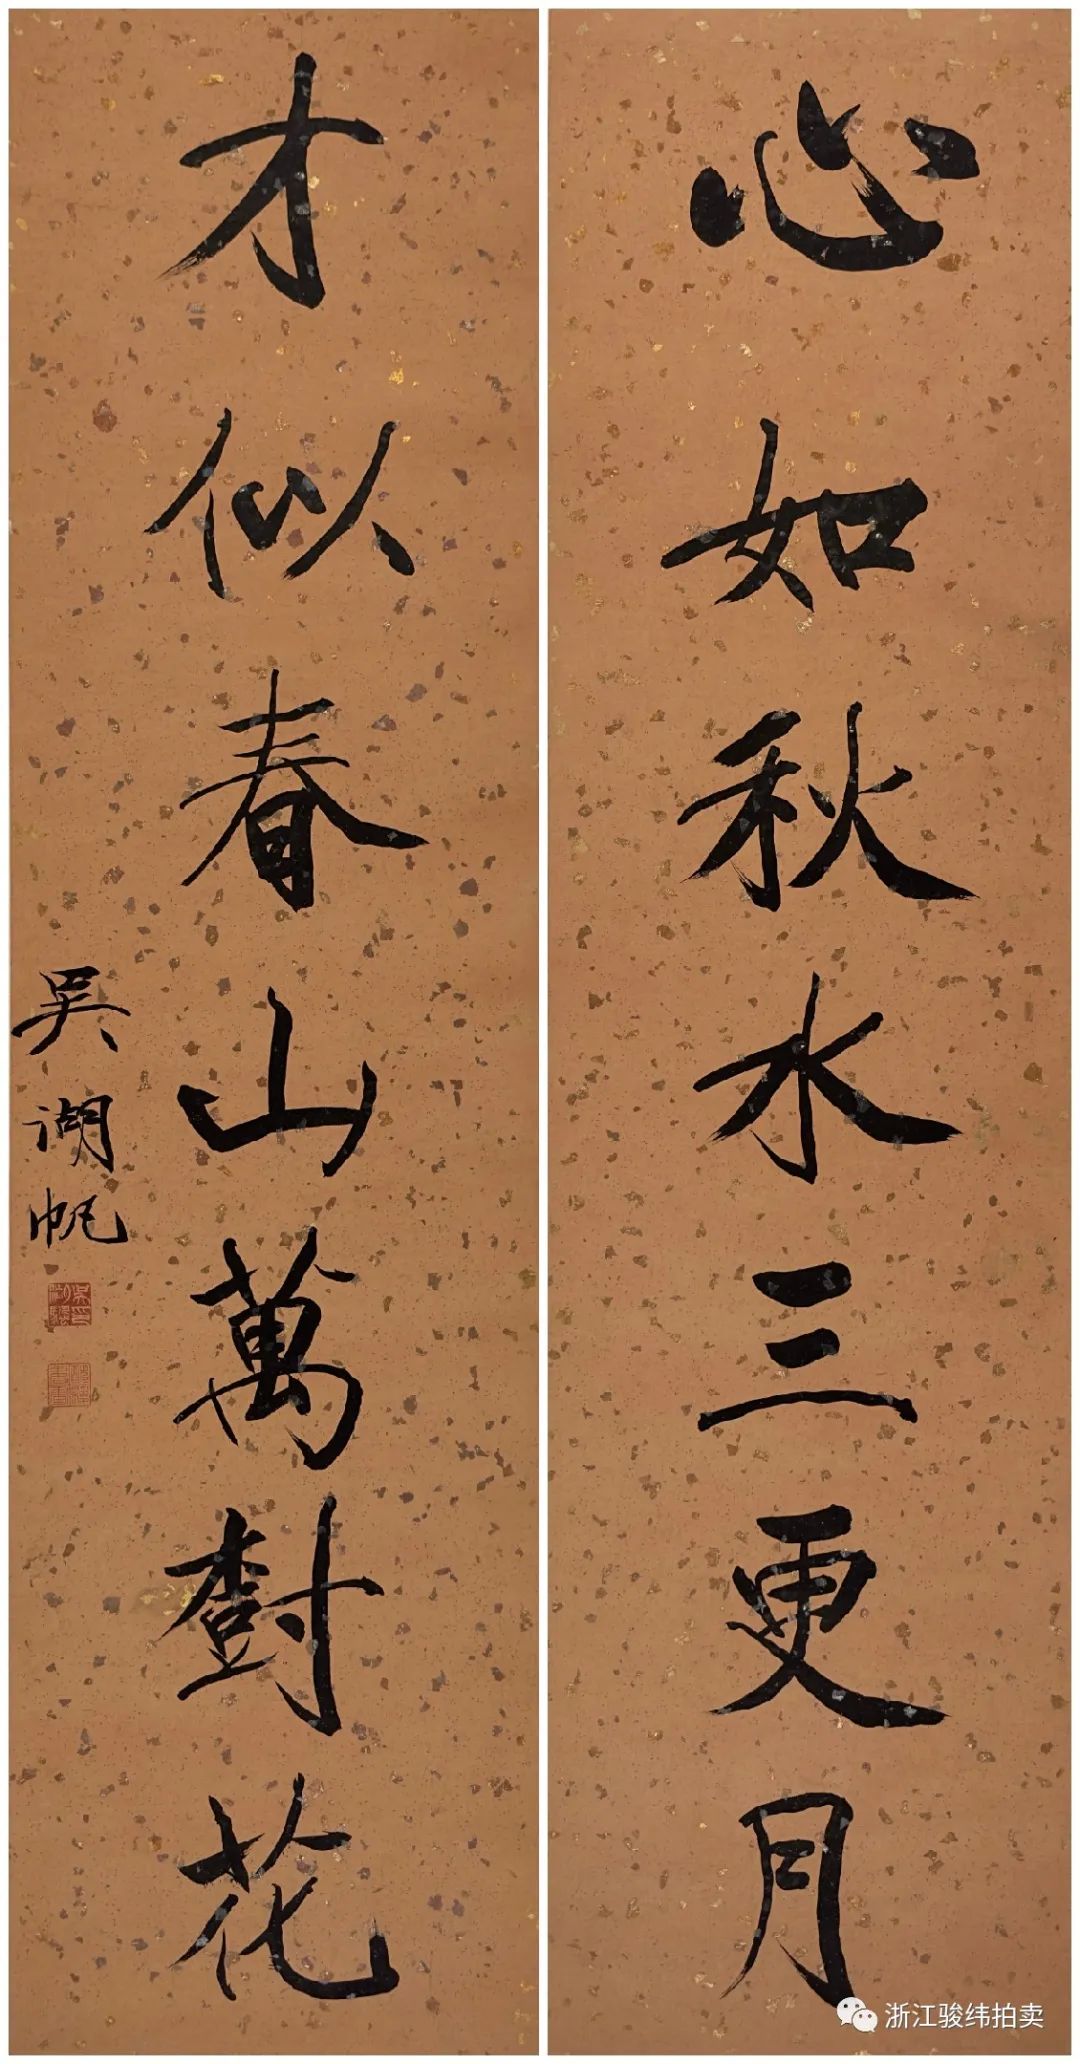 心如秋水三更月
才似春山萬樹花
吳湖帆
浙江骏纬拍卖